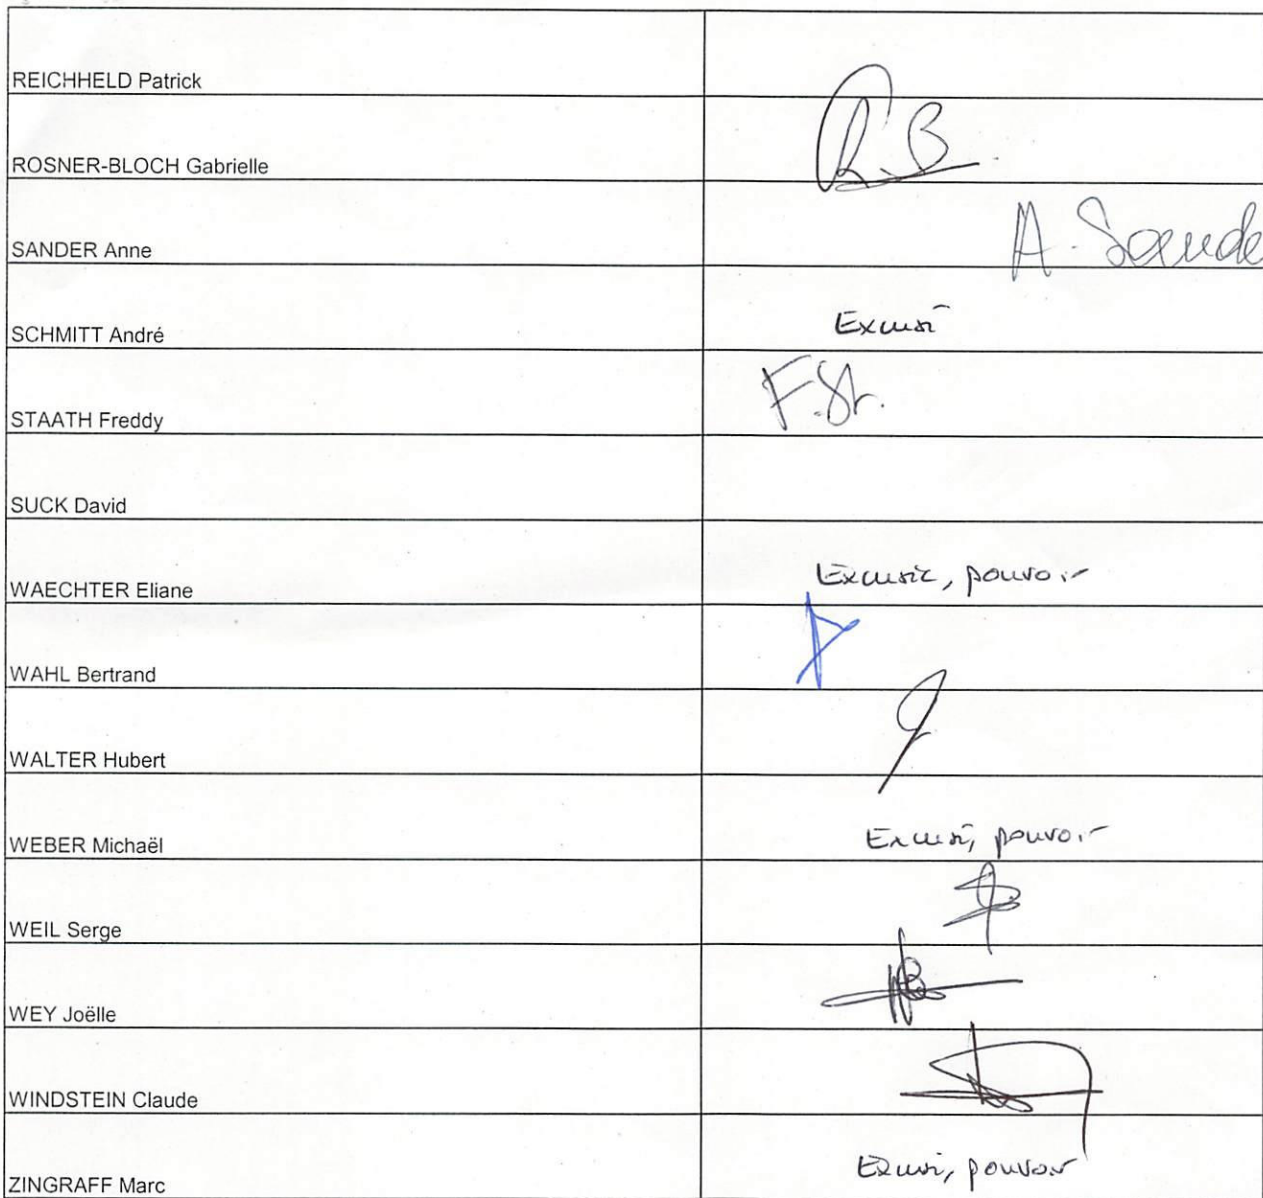 REICHHELD Patrick
ROSNER-BLOCH Gabrielle
R.B.
SANDER Anne
A. Sande
SCHMITT André
Excusé
STAATH Freddy
F.St.
SUCK David
WAECHTER Eliane
Excusée, pouvoir
WAHL Bertrand
WALTER Hubert
WEBER Michaël
Excusé, pouvoir
WEIL Serge
WEY Joëlle
WINDSTEIN Claude
ZINGRAFF Marc
Excusé, pouvoir